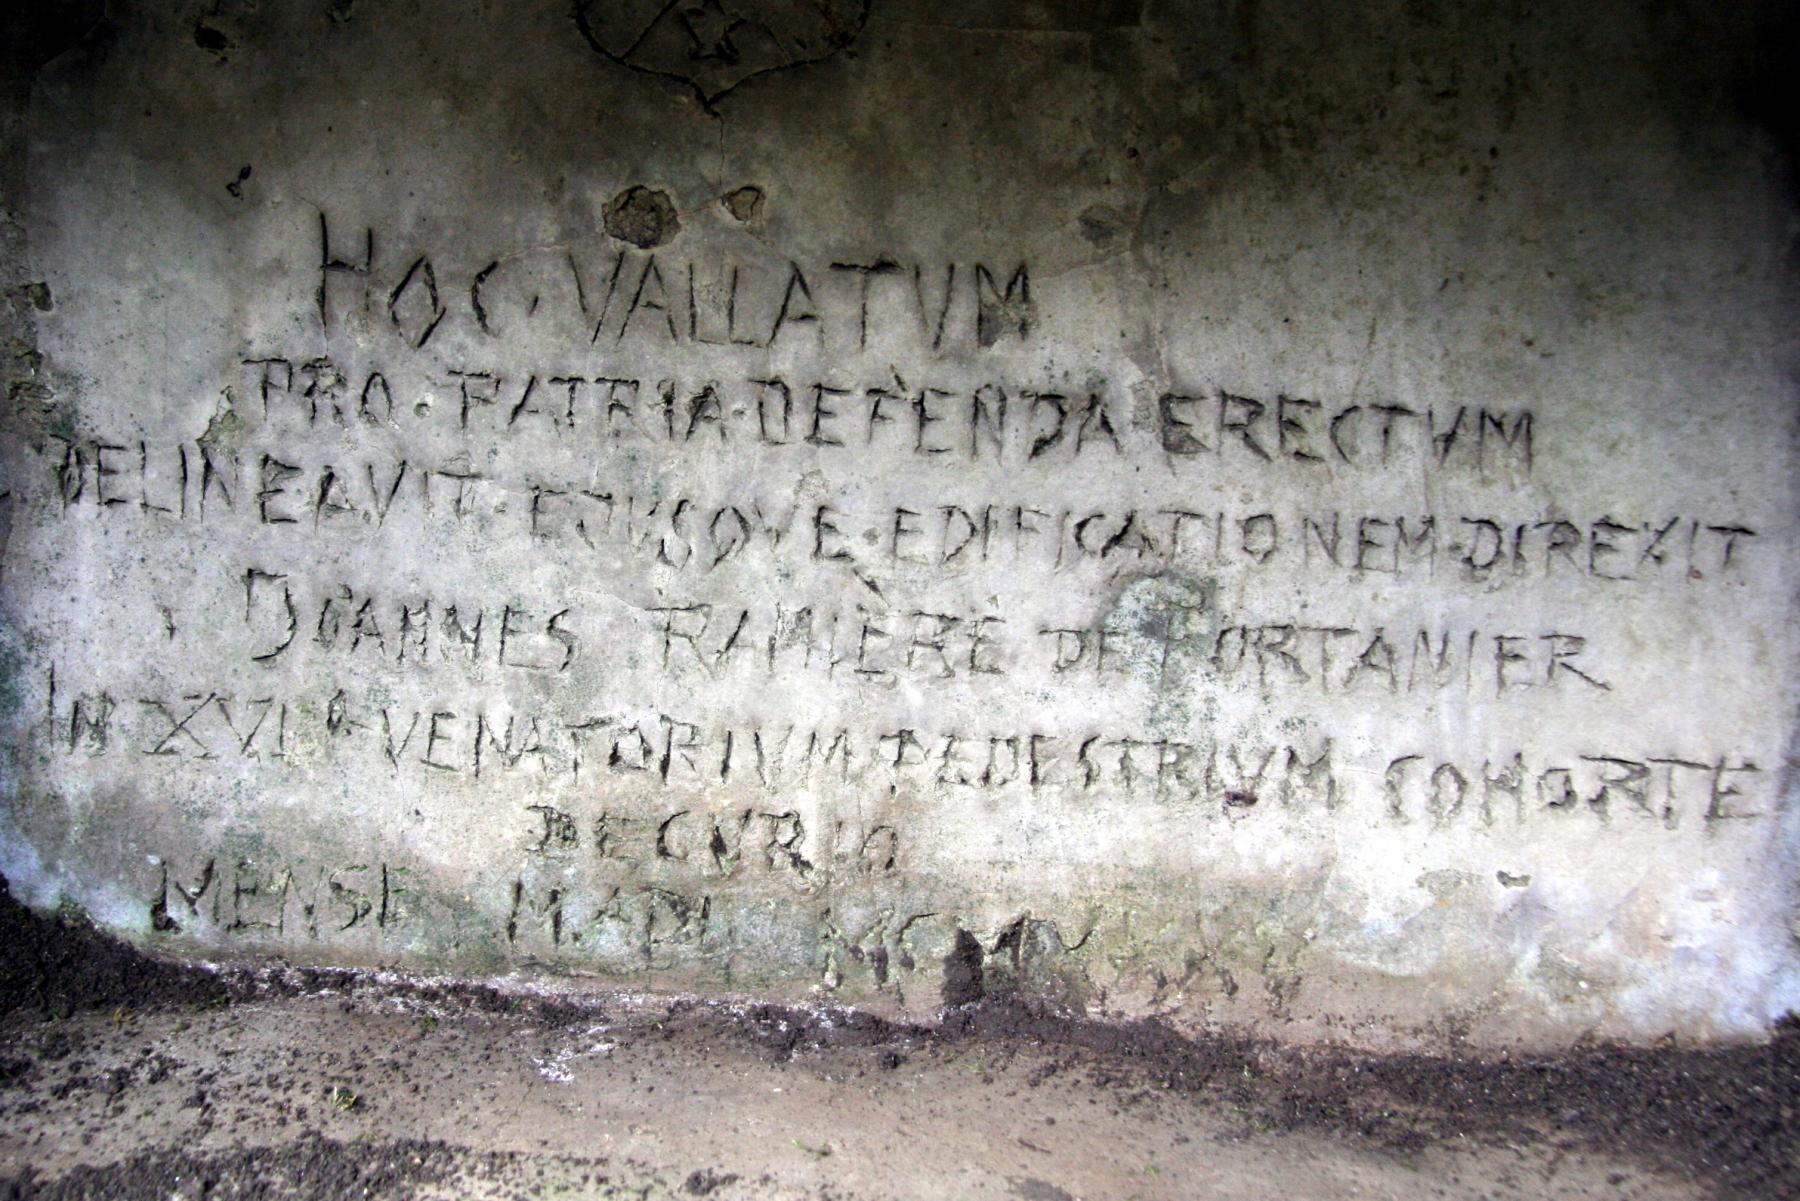 HOC · VALLATUM
PRO · PATRIA · DEFENDA ERECTVM
DELINEAVIT · EJVSQVE · EDIFICATIONEM · DIREXIT
JOANNES RAMIÈRE DE FORTANIER
IN XVI A VENATORIVM PEDESTRIVM COHORTE
DECVRIO
MENSE MADI